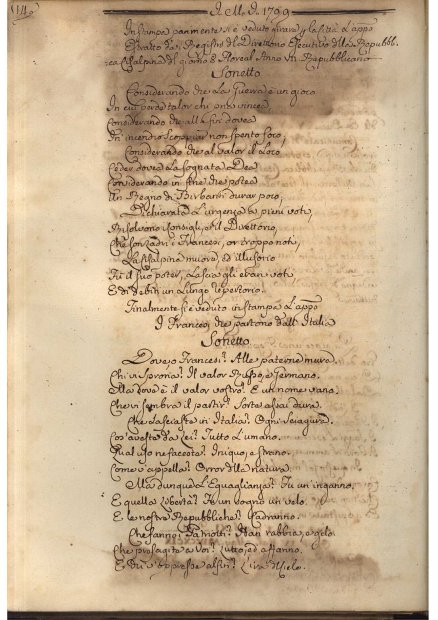 114.
D. M. D. 1799
In stampa parimente si è veduto girare p la Città l'appo
Estratto da' Registri del Direttorio Esecutivo della Repubbl.
ca Cisalpina del giorno 8 Floreal Anno VII Repubblicano
Sonetto
Considerando che la Guerra è un gioco
In cui perde talor chi pria vincea,
Considerando che alla fin dovea
Un incendio scoppiar non spento foco,
Considerando che al valor il loco
Ceder dovea la sognata Dea
Considerando in fine che potea
Un Regno di Birbanti durar poco,
Dichiarata l'urgenza a pieni voti,
Risolvono i Consigli, ed il Direttorio,
Che son ladri i Francesi, or troppo noti,
La Cisalpina muora, ed illusorio
Fu il suo poter, lascia gli erari voti
E di debiti un lungo repertorio.
Finalmente si è veduto in stampa l'appo
I Francesi che partono dall'Italia
Sonetto
Dove o Francesi? Alle paterne mura.
Chi vi sprona? Il valor Russo, e Germano.
Ma dov'è il valor vostro? È un nome vano.
Che vi sembra il partir? Sorte assai dura.
Che lasciaste in Italia? Ogni sciagura.
Cos'aveste da Lei? Tutto l'umano.
Qual uso ne faceste? Iniquo, e strano.
Come s'appella? Orror della natura.
Ma dunque l'Eguaglianza? Fu un inganno.
E quella Libertà? Fu un sogno un velo.
E le nostre Repubbliche? Cadranno.
Che fanno i Patriotti? Han rabbia, e gelo.
Che presagite a Voi? Lutto, ed affanno.
E chi v'oppresse alfin? L'ira del Cielo.